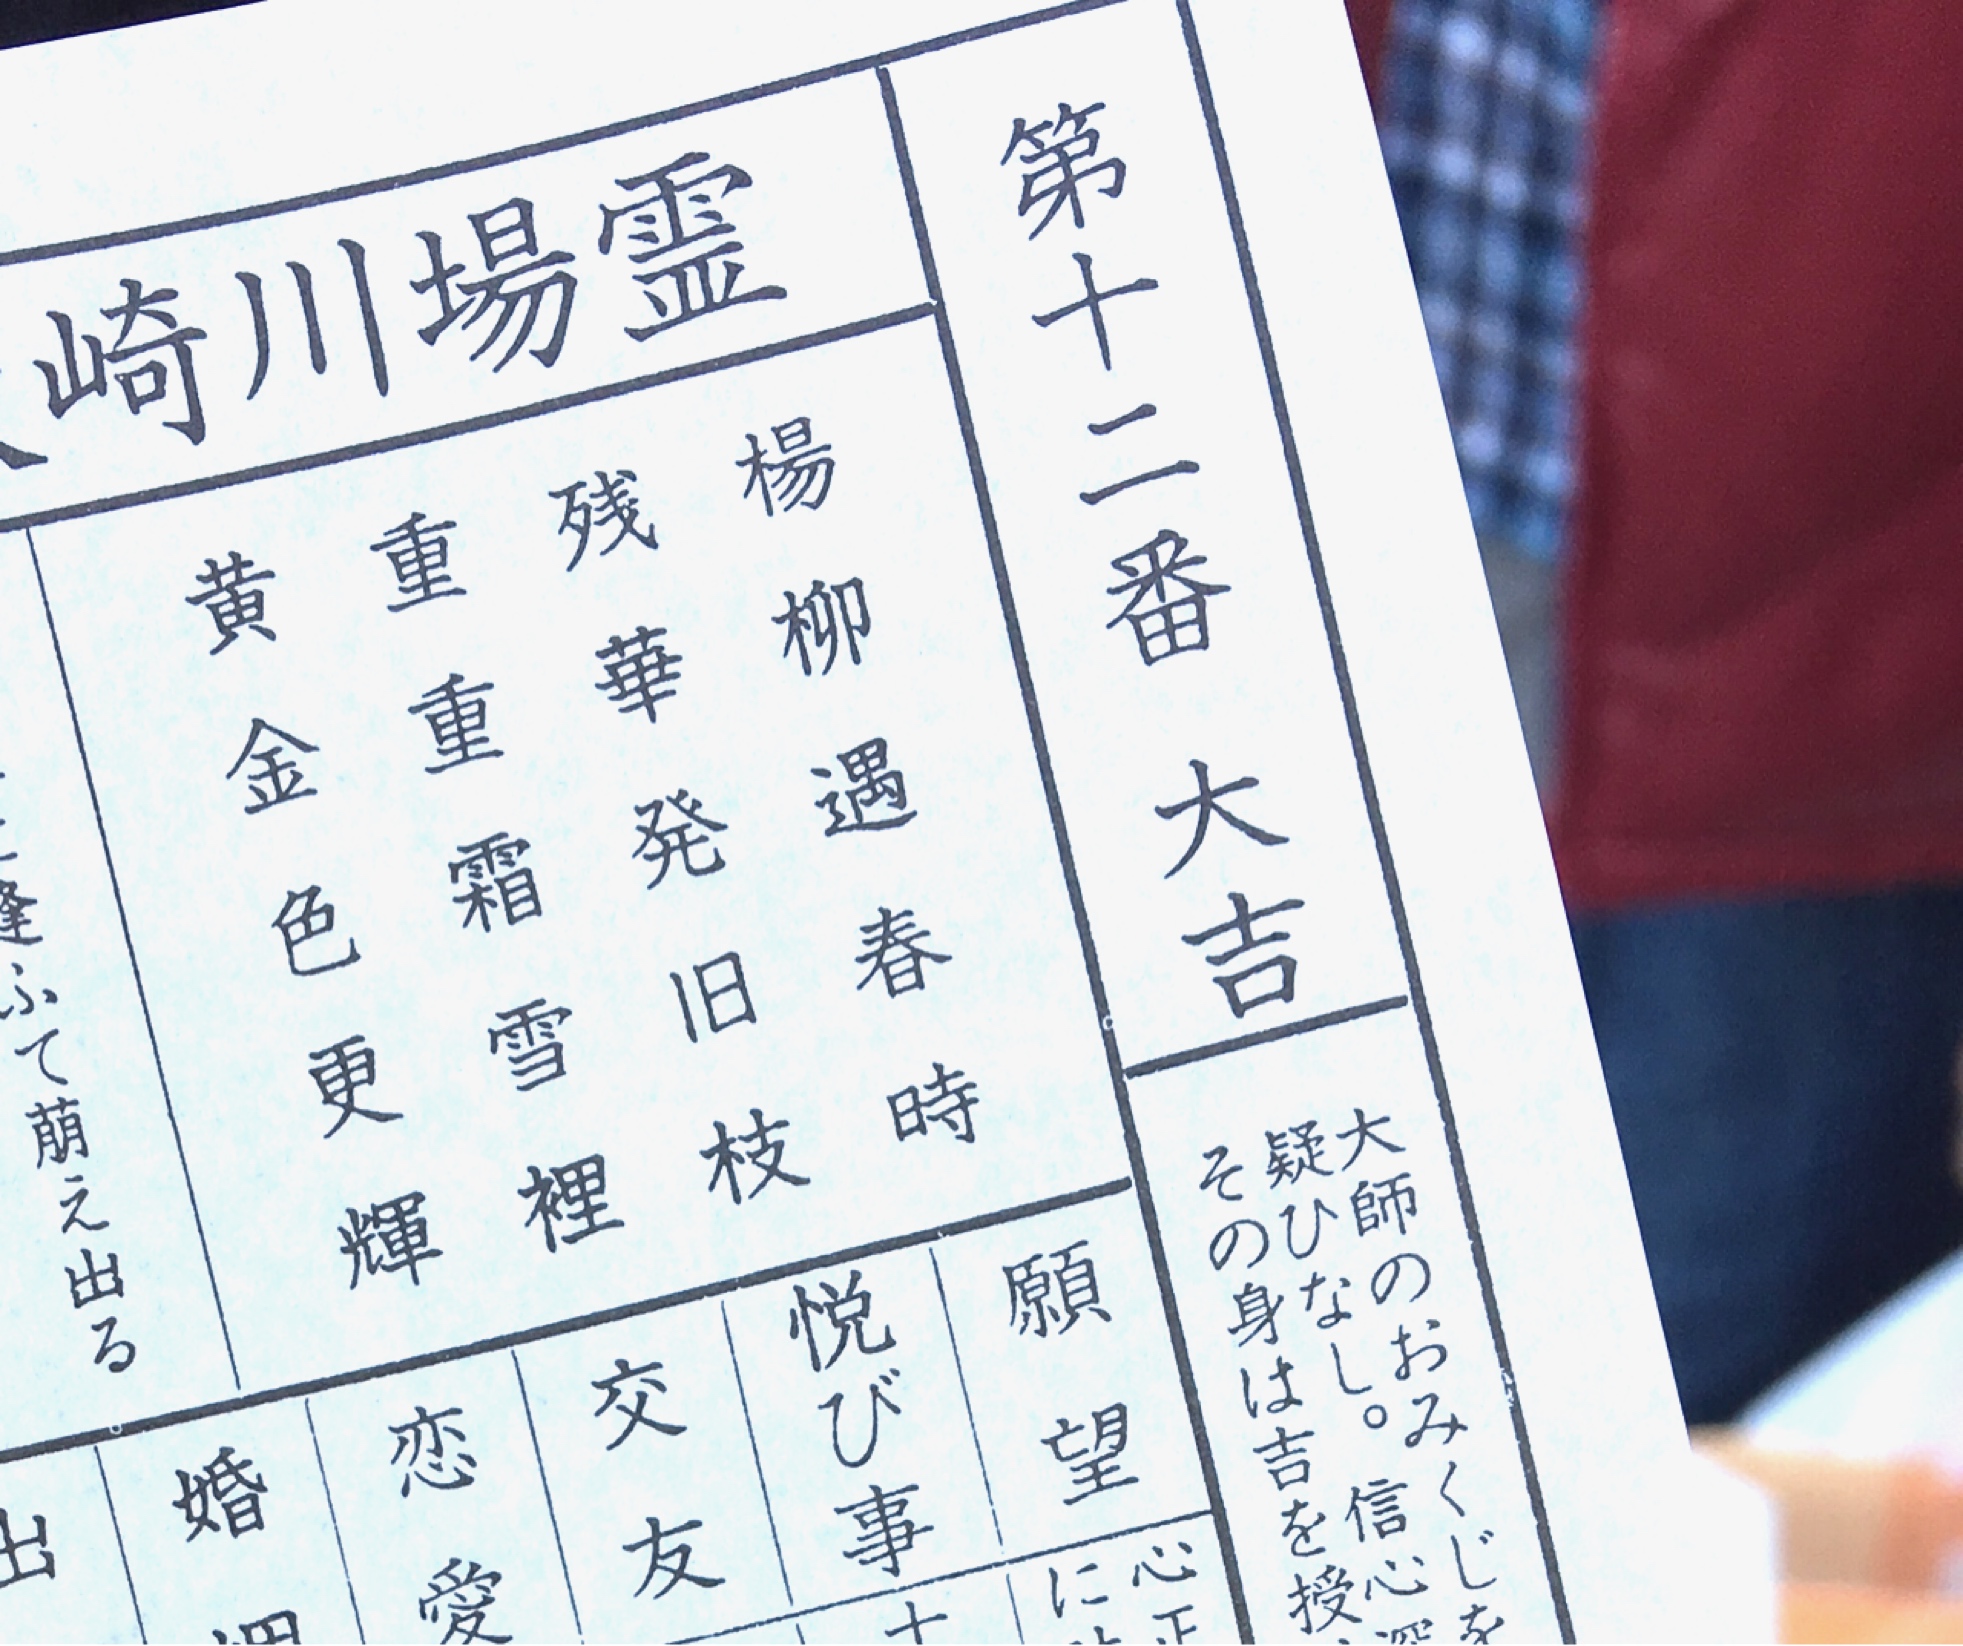 第十二番 大吉
大師のおみくじを
疑ひなし。信心深
その身は吉を授
霊場川崎
楊柳遇春時
残華発旧枝
重重霜雪裡
黄金色更輝
逢ふて萌え出る
願望
心正
に
悦び事
交友
恋愛
婚姻
出